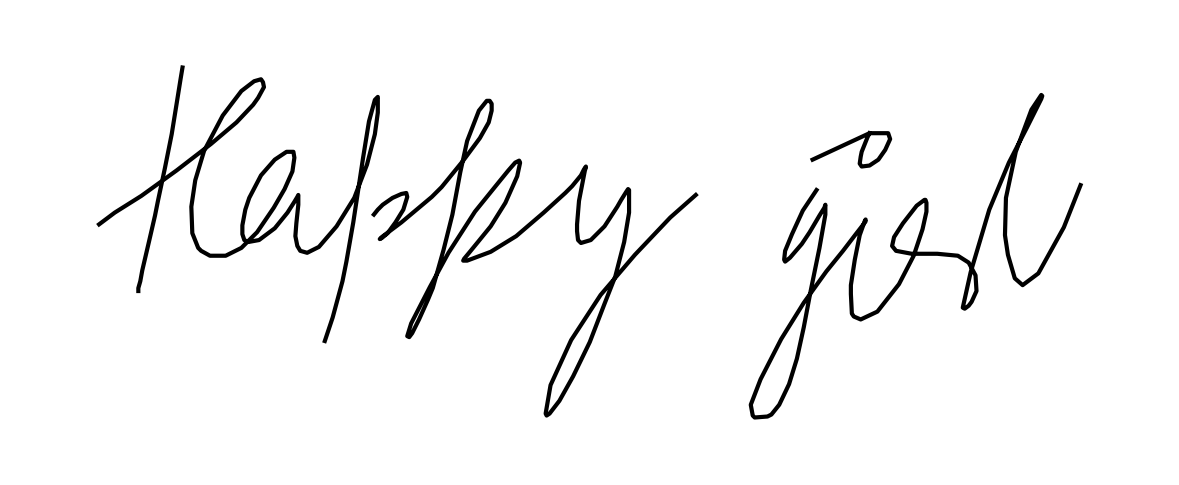 Happy girl